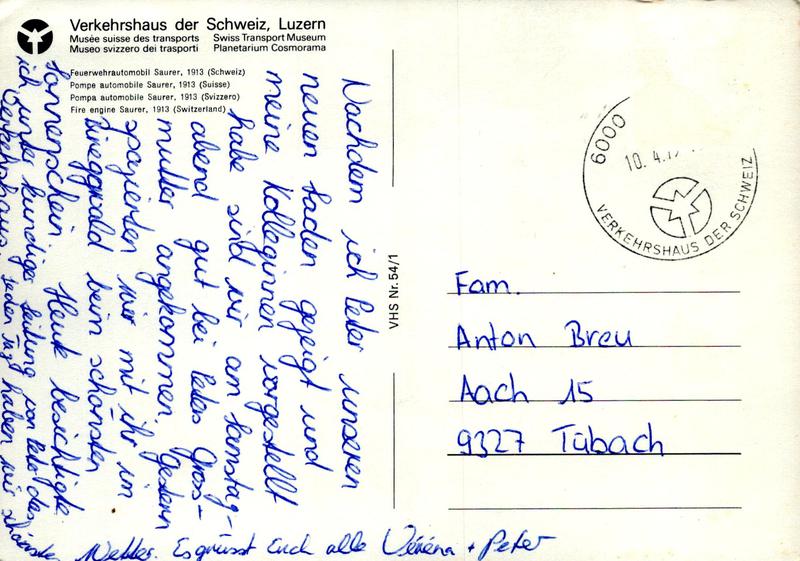 Verkehrshaus der Schweiz, Luzern
Musée suisse des transports Swiss Transport Museum
Museo svizzero dei trasporti Planetarium Cosmorama
Feuerwehrautomobil Saurer, 1913 (Schweiz)
Pompe automobile Saurer, 1913 (Suisse)
Pompa automobile Saurer, 1913 (Svizzero)
Fire engine Saurer, 1913 (Switzerland)
Nachdem ich Peter unseren
neuen Laden gezeigt und
meine Kolleginnen vorgestellt
habe sind wir am Samstag-
abend gut bei Peters Gross-
mutter angekommen. Gestern
spazierten wir mit ihr im
Bireggwald beim schönsten
Sonnenschein. Heute besichtigte
ich unter kundiger Leitung von Peter das
Verkehrshaus. Jeden Tag haben wir schönstes
Wetter. Es grüsst Euch alle Verena + Peter
VHS Nr. 54/1
6000
10. 4.
VERKEHRSHAUS DER SCHWEIZ
Fam.
Anton Breu
Aach 15
9327 Tübach